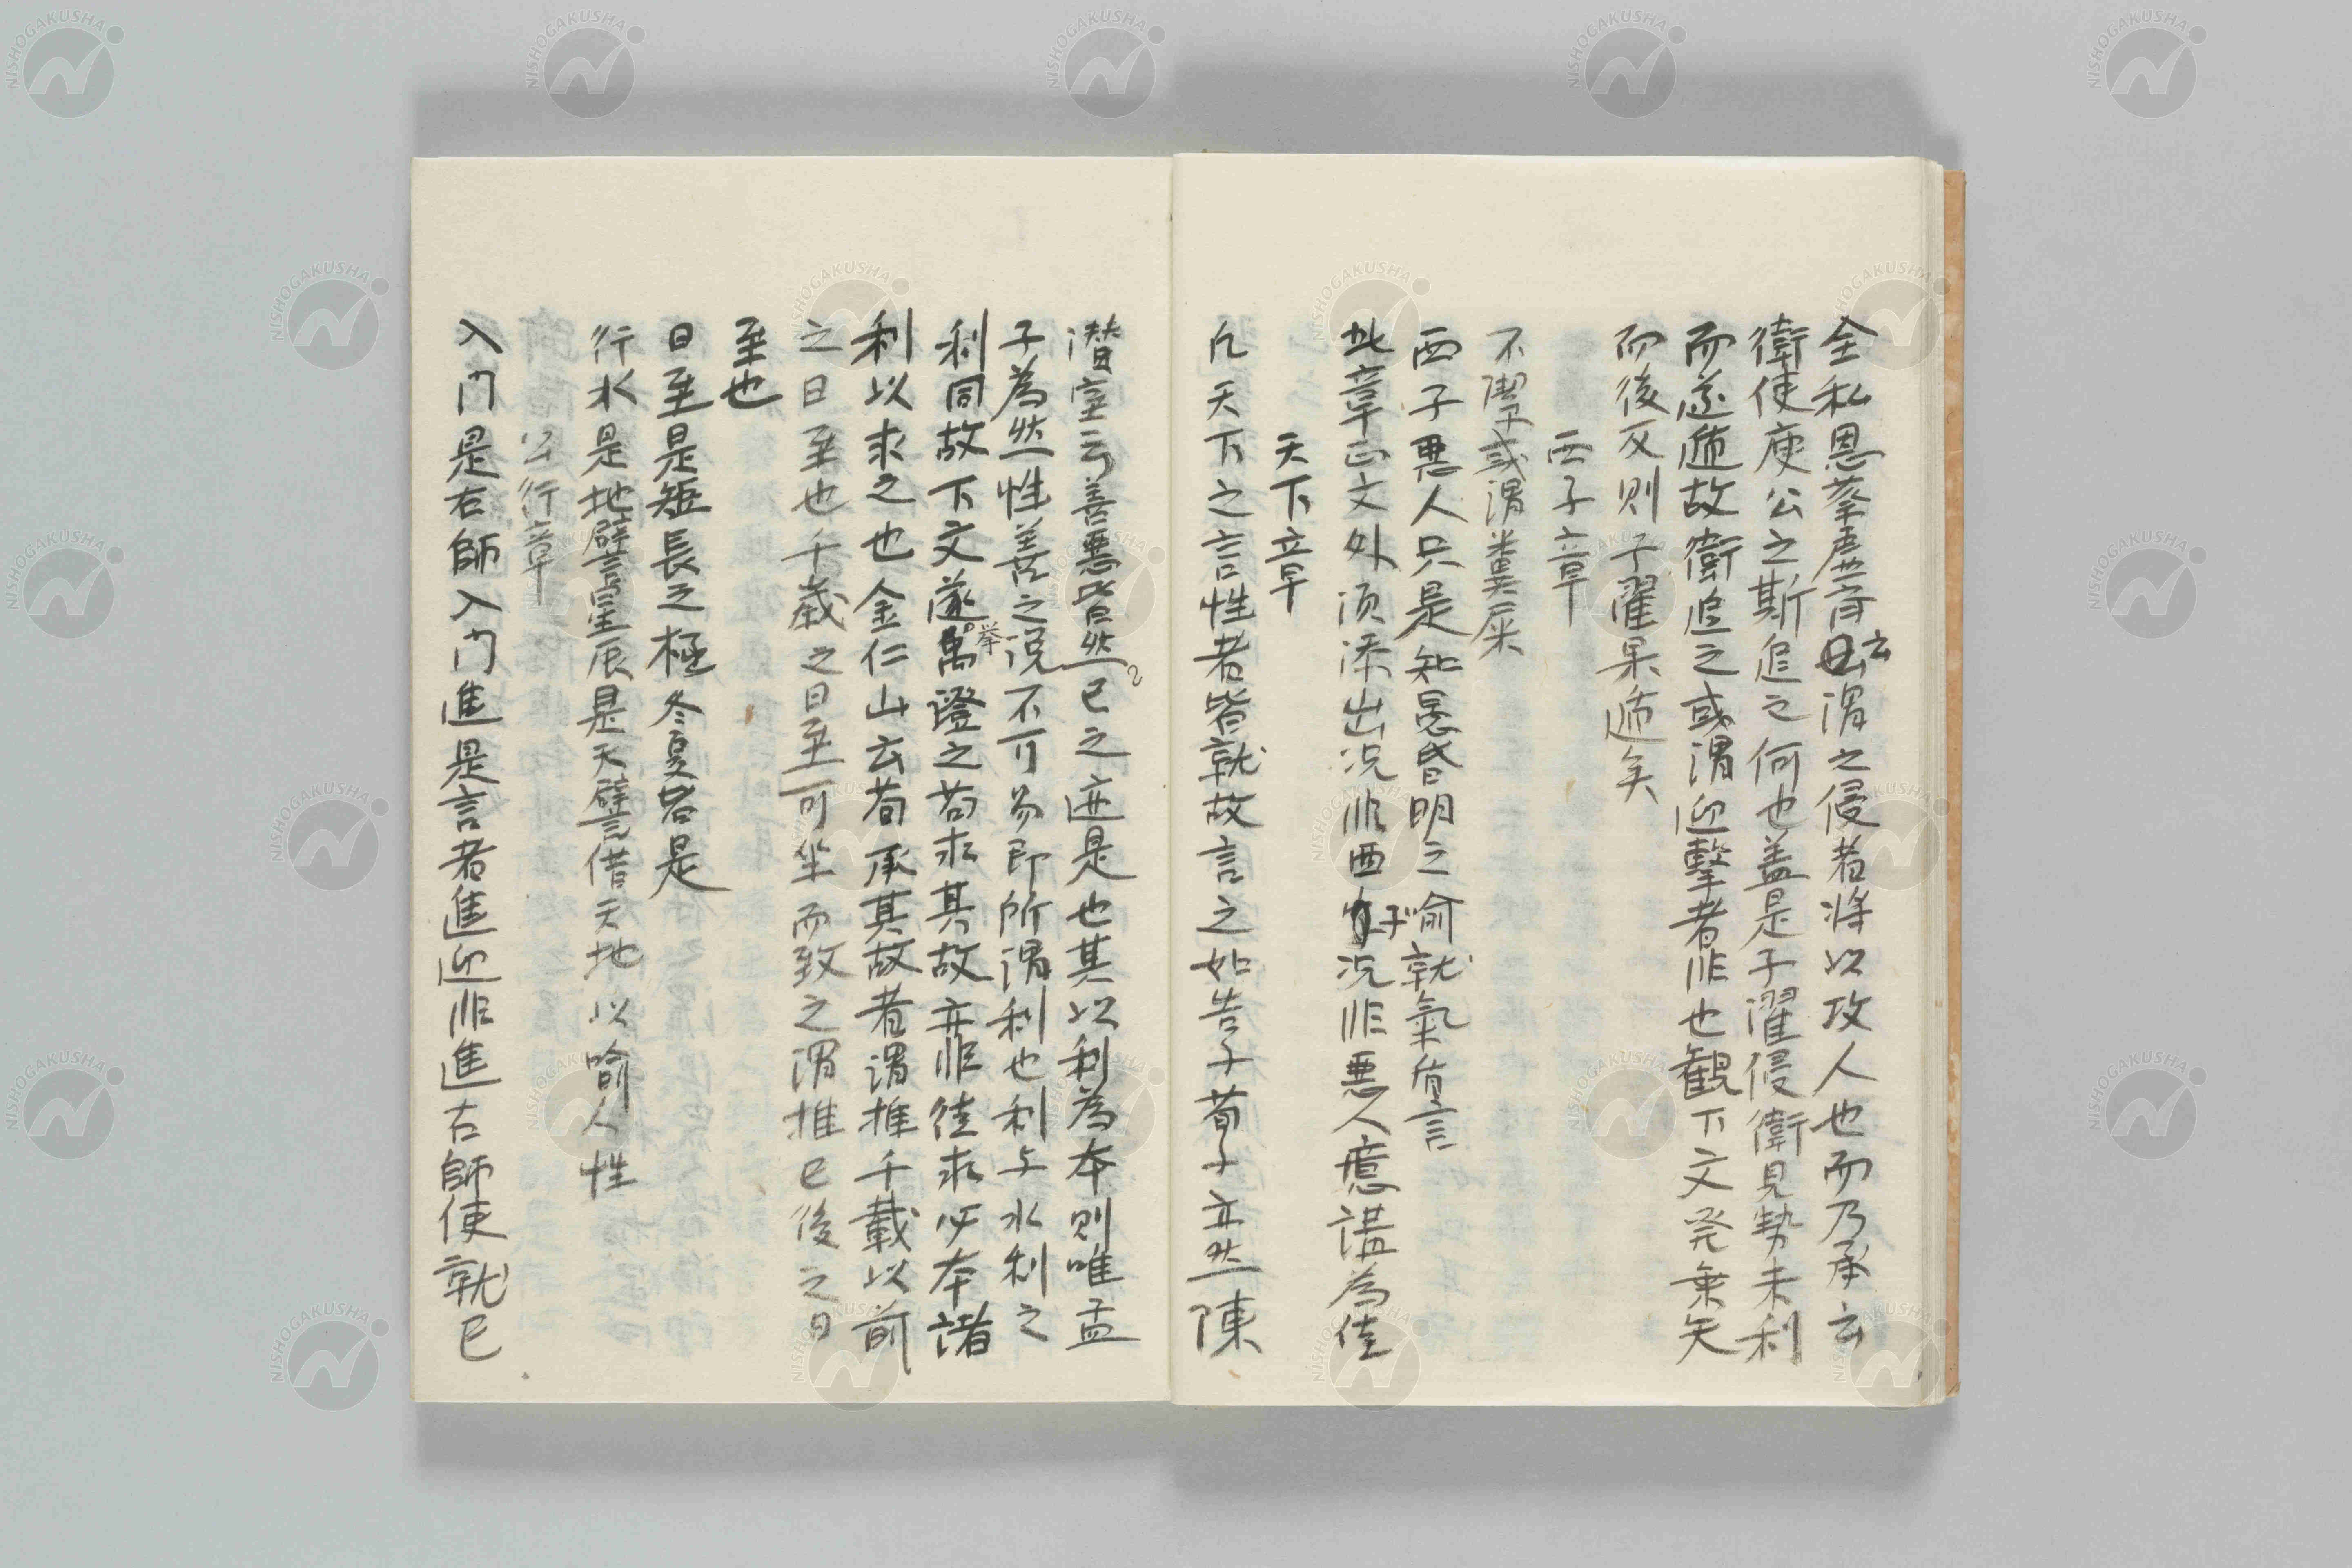 全私恩蔡虚斎云謂之侵者将以攻人也而乃承云
衛使庾公之斯追之何也盖是子濯侵衛見勢未利
而遂遁故衛追之或謂迎撃者非也観下文発乗矢
而後反則子濯果遁矣
西子章
不潔或謂糞屎
西子悪人只是知愚昏明之喩就氣質言
此章正文外須添出況非西子況非悪人意講為佳
天下章
凡天下之言性者皆就故言之如告子荀子亦然陳
潜室云善悪皆然已之迹是也其以利為本則唯孟
子為然性善之説不可易即所謂利也利与水利之
利同故下文遂挙禹證之苟求其故亦非徒求必本諸
利以求之也金仁山云苟承其故者謂推千載以前
之日至也千歳之日至可坐而致之謂推已後之日
至也
日至是短長之極冬夏各是
行水是地譬星辰是天譬借天地以喩人性
公行章
入門是右師入門進是言者進迎非進右師使就已
NISHOGAKUSHA